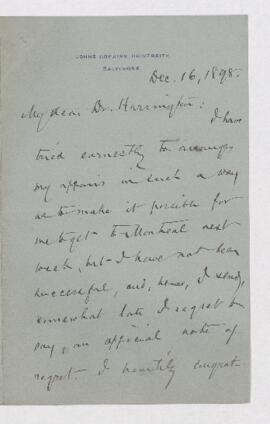 JOHNS HOPKINS UNIVERSITY
BALTIMORE
Dec. 16, 1898.
My dear Dr. Harrington:
I have
tried earnestly to arrange
my affairs in such a way
as to make it possible for
me to get to Montreal next
week, but I have not been
successful, and, hence, I send,
somewhat late I regret to
say, an official note of
regret. I heartily congrat-